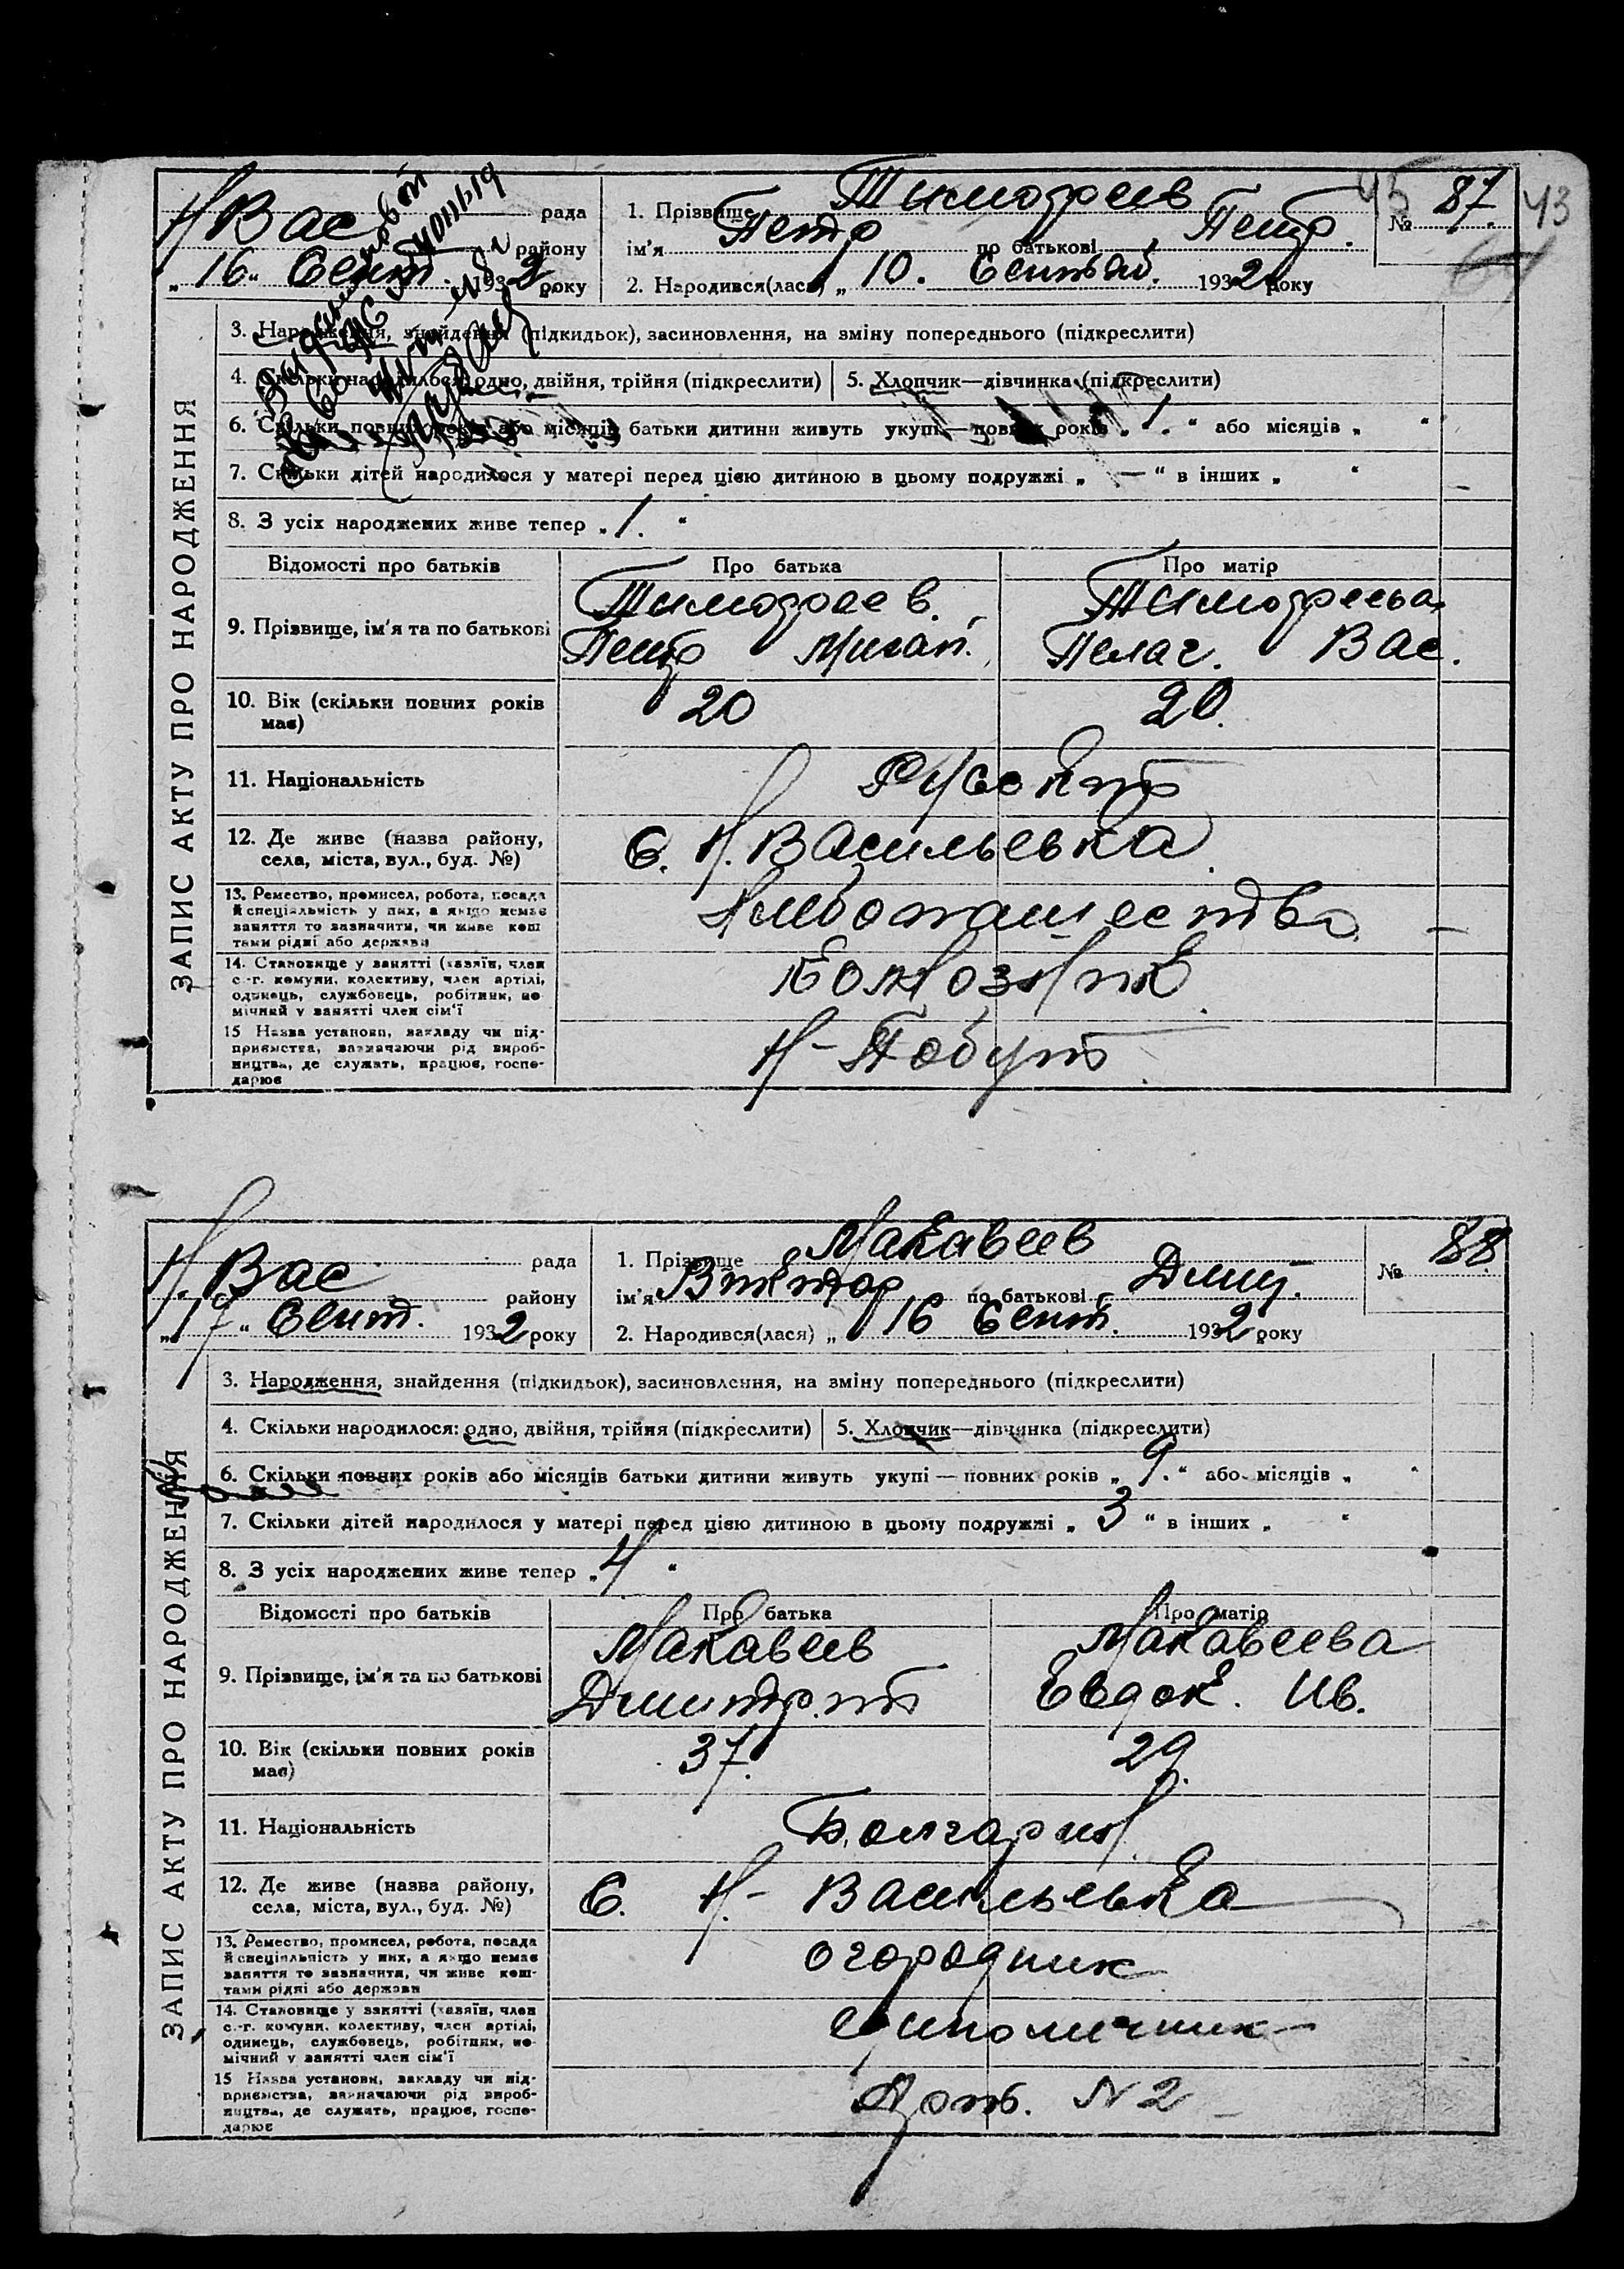 45
43
Н Вас рада
району
„16“ Сент. 1932 року
1. Прізвище Тимофеев
ім'я Петр по батькові Петр.
2. Народився(лася) „10. Сентяб. 1932 року
№ 87.
3. Народження, знайдення (підкидьок), засиновлення, на зміну попереднього (підкреслити)
4. Скільки народилося: одно, двійня, трійня (підкреслити) 5. Хлопчик—дівчинка (підкреслити)
6. Скільки повних років або місяців батьки дитини живуть укупі — повних років „1.“ або місяців „ “
7. Скільки дітей народилося у матері перед цією дитиною в цьому подружжі „—“ в інших „ “
8. З усіх народжених живе тепер „1.“
ЗАПИС АКТУ ПРО НАРОДЖЕННЯ
Відомості про батьків Про батька Про матір
9. Прізвище, ім'я та по батькові
Тимофеев Тимофеева
Петр Михаи. Пелаг. Вас.
10. Вік (скільки повних років має) 20 20.
11. Національність
12. Де живе (назва району,
села, міста, вул., буд. №) С. Н. Васильевка
13. Ремество, промисел, робота, посада
й спеціальність у них, а якщо немає
заняття то зазначити, чи живе кош
тами рідні або держави
Хлебопашество
14. Становище у занятті (хазяїн, член
с.-г. комуни, колективу, член артілі,
одинець, службовець, робітник, по-
мічний у занятті член сім'ї
15 Назва установи, закладу чи під-
приємства, зазначаючи рід вироб-
ництва, де служать, працює, госпо-
дарює
Н. Вас рада
району
„17“ Сент. 1932 року
1. Прізвище Макавеев
ім'я Виктор по батькові Дмит.
2. Народився(лася) „16 Сент. 1932 року
№ 88
3. Народження, знайдення (підкидьок), засиновлення, на зміну попереднього (підкреслити)
4. Скільки народилося: одно, двійня, трійня (підкреслити) 5. Хлопчик—дівчинка (підкреслити)
6. Скільки повних років або місяців батьки дитини живуть укупі — повних років „9.“ або місяців „ “
7. Скільки дітей народилося у матері перед цією дитиною в цьому подружжі „3“ в інших „ “
8. З усіх народжених живе тепер „4“
ЗАПИС АКТУ ПРО НАРОДЖЕННЯ
Відомості про батьків Про батька Про матір
9. Прізвище, ім'я та по батькові
Макавеев Макавеева
Дмитр. Евдок. Ив.
10. Вік (скільки повних років має) 37. 29.
11. Національність
12. Де живе (назва району,
села, міста, вул., буд. №) С. Н. Васильевка
13. Ремество, промисел, робота, посада
й спеціальність у них, а якщо немає
заняття то зазначити, чи живе кош-
тами рідні або держави
огородник
14. Становище у занятті (хазяїн, член
с.-г. комуни, колективу, член артілі,
одинець, службовець, робітник, по-
мічний у занятті член сім'ї
единоличник
15 Назва установи, закладу чи під-
приємства, зазначаючи рід вироб-
ництва, де служать, працює, госпо-
дарює
N 2